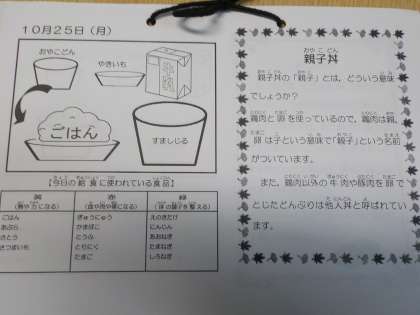 10月25日(月)
おやこどん
やきいも
ごはん
すましじる
【今日の給食に使われている食品】
黄
(熱や力になる)
赤
(血や肉や骨になる)
緑
(体の調子を整える)
ごはん
あぶら
さとう
さつまいも
ぎゅうにゅう
かまぼこ
とうふ
とりにく
たまご
えのきたけ
にんじん
あおねぎ
たまねぎ
しろねぎ
おや こ どん
親子丼
親子丼の「親子」とは、どういう意味
でしょうか?
鶏肉と卵を使っているので、鶏肉は親、
卵は子という意味で「親子」という名前
がついています。
また、鶏肉以外の牛肉や豚肉を卵で
とじたどんぶりは他人丼と呼ばれてい
ます。